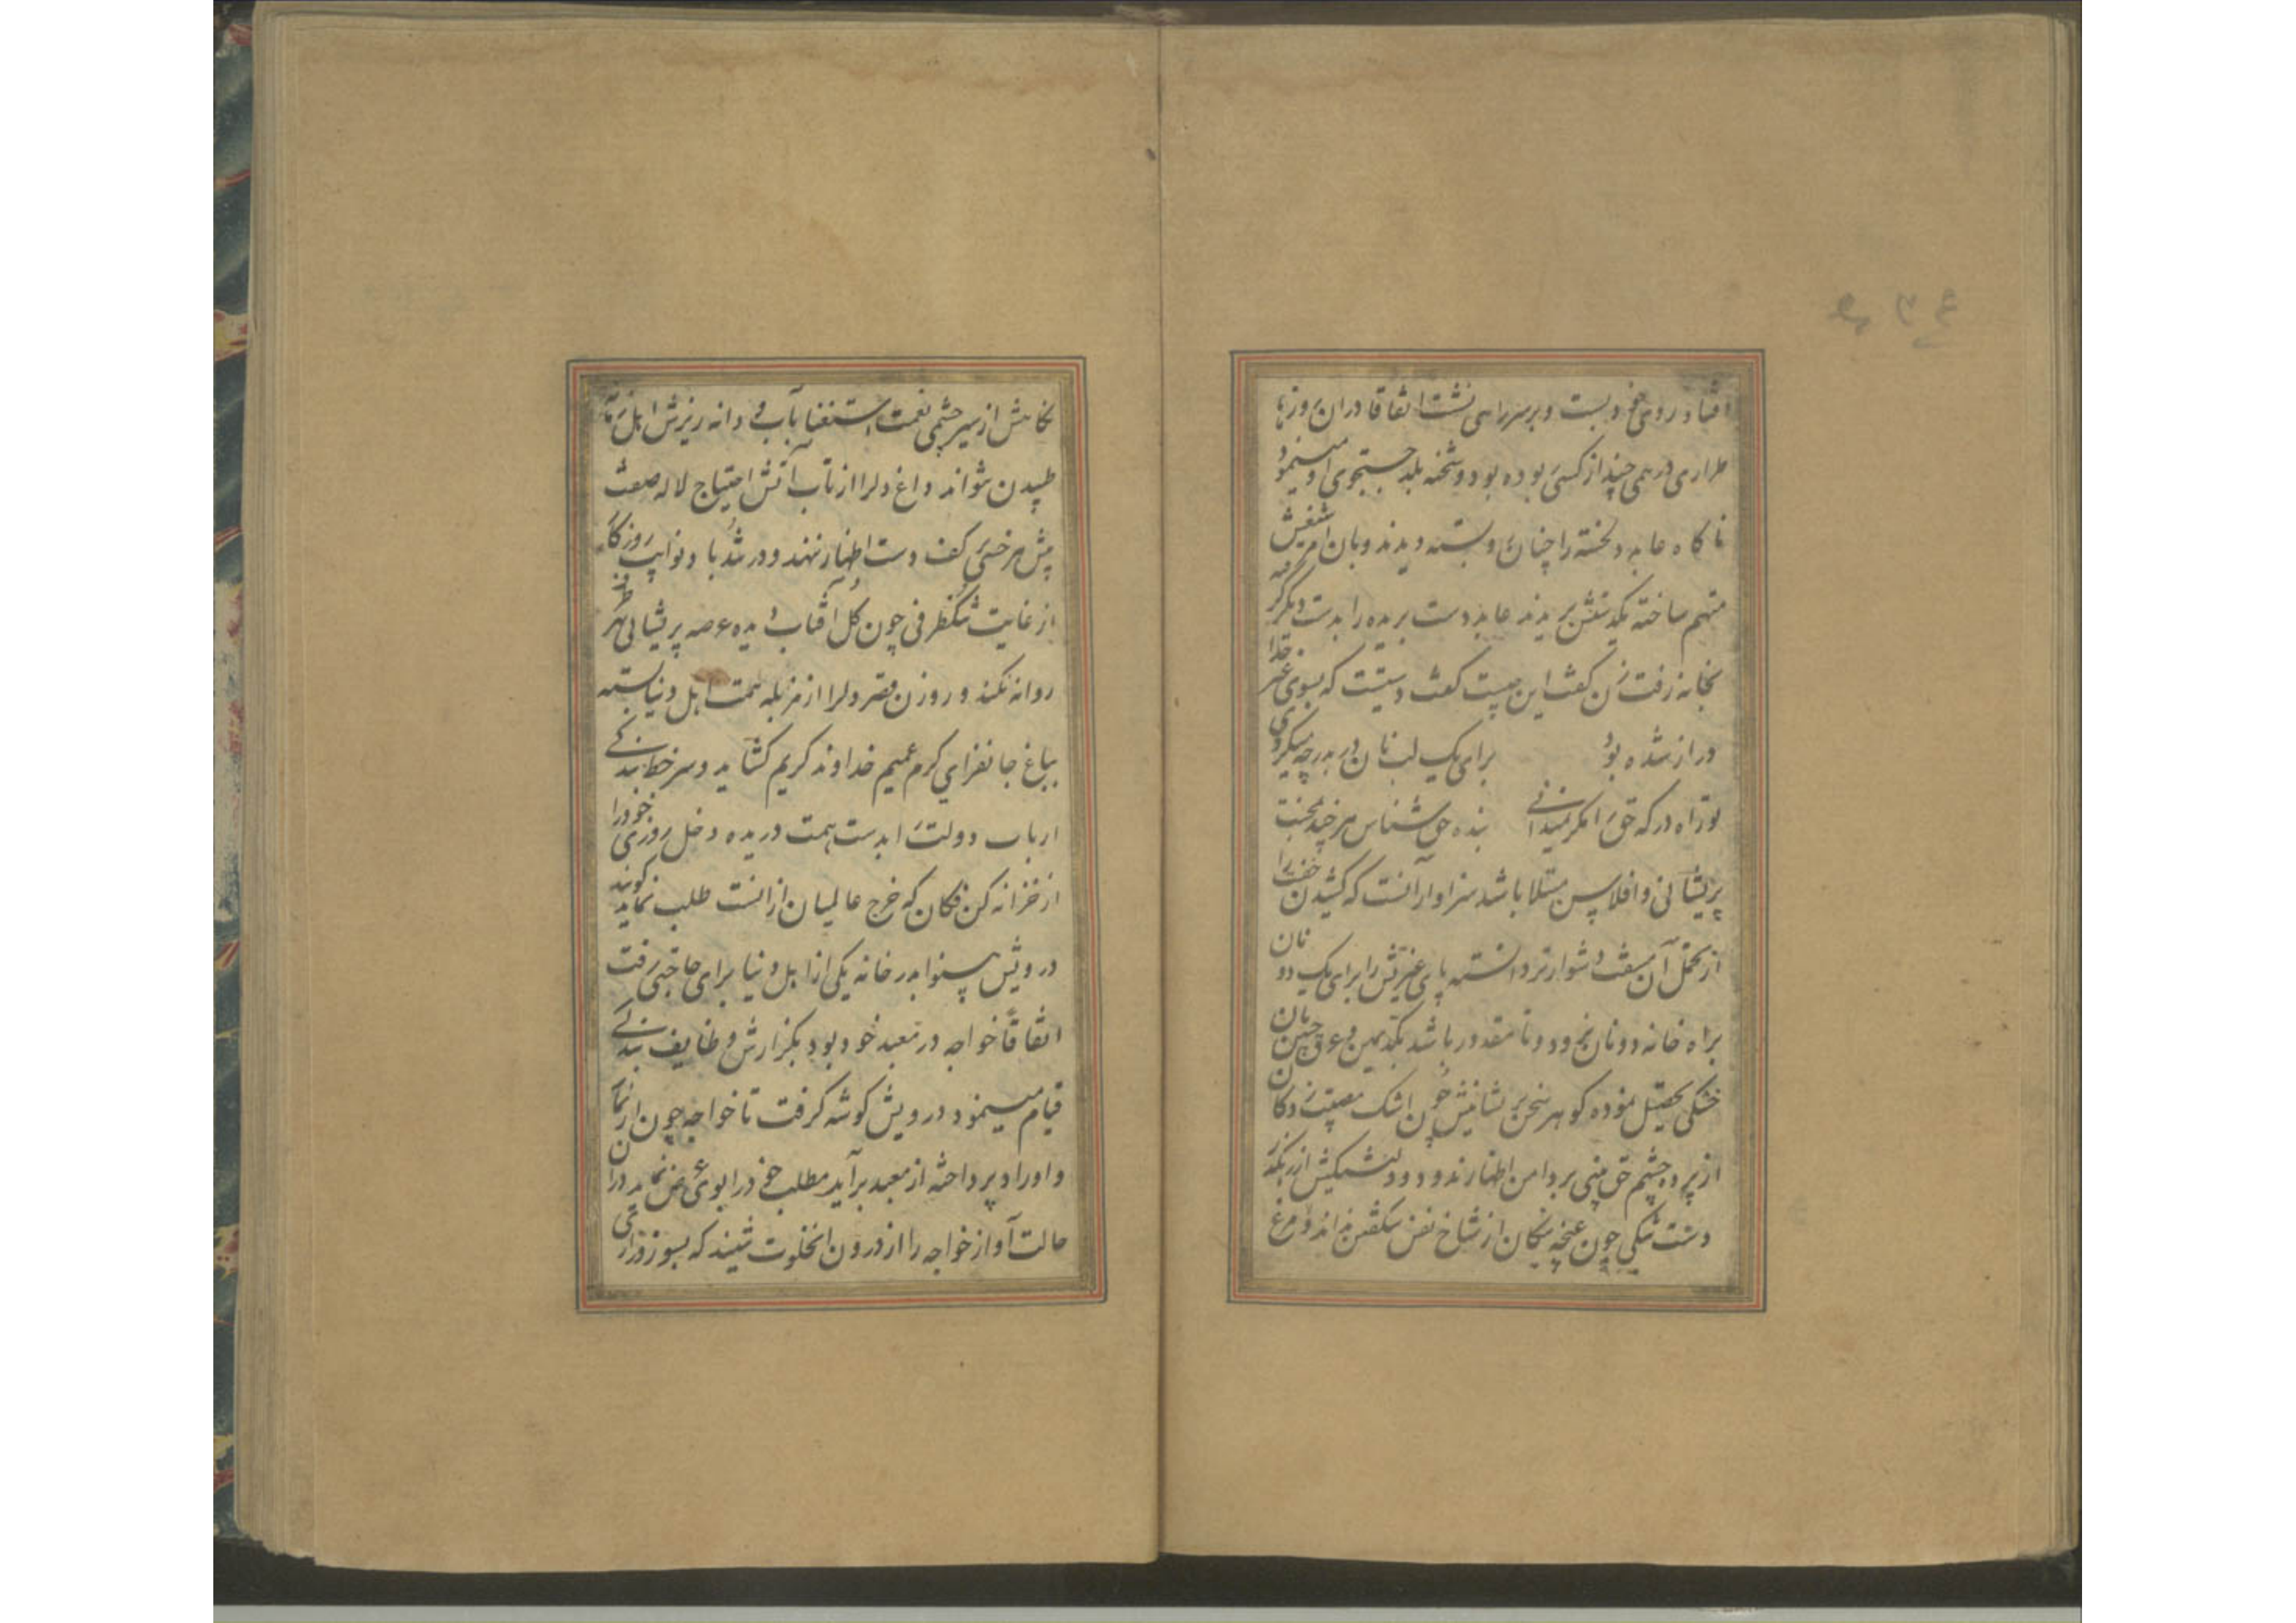 افتاد روی خود بست و بر سر راهی نشست اتفاقا دران روزها
طراری درهمی چند از کسی بوده بود و شحنه بلد جستجوی او مینمود
ناکاه عابد دلخسته را چنان رو بسته دیدند و بان
متهم ساخته یکدستش بریدند عابد دست بریده را بدست دیکر کرفته
بخانه رفت زن کفت این چیست کفت دستیست که بسوی غیر خدا
دراز شده بود برای یک لب نان در بدر چه میکردی
تو راه درکه حق را مکر نمیدانی بنده حق شناس هر چند بمحنت
پریشانی و افلاس مبتلا باشد سزاوار آنست که کشیدن
از تحمل آن مشقت دشوارتر دانسته پای عزیمتش را برای یک دو نان
براه خانه دونان نبرد و تا مقدور باشد بکد یمین و عرق جبین نان
خشکی تحصیل نموده کوهر سخن پریشانیش چون اشک مصیبت زدکان
از پرده چشم حق بینی بر دامن اظهار ندود و دلتنکیش از رهکذر
دست تنکی چون غنچه پیکان از شاخ نفس شکفتن نداند و مرغ
نکاهش از سیر چشمی نعمت استغنا بآب و دانه ریزش اهل
طپیدن نتواند داغ دلرا از تاب آتش احتیاج لاله صفت
پیش هر خسی کف دست اظهار ننهد و در تندباد نوایب روزکار
از غایت تنکظرفی چون کل آفتاب دیده عرصه پریشانی بهر
روانه نکند و روزن قصر دلرا از مزبله همت اهل دنیا بسته
بباغ جانفزای کرم عمیم خداوند کریم کشاید و سر خط بندکی
ارباب دولت را بدست همت دریده دخل روزی خود را
از خزانه کن فکان که خرج عالمیان از انست طلب نماید کویند
درویش بینوا بدر خانه یکی از اهل دنیا برای حاجتی رفت
اتفاقا خواجه در معبد خود بود بکزارش وظایف بندکی
قیام مینمود درویش کوشه کرفت تا خواجه چون از نماز
و اوراد پرداخته از معبد برآید مطلب خود را بوی عرض نماید دران
حالت آواز خواجه را از درون انخلوت شنید که بسوز و زاری